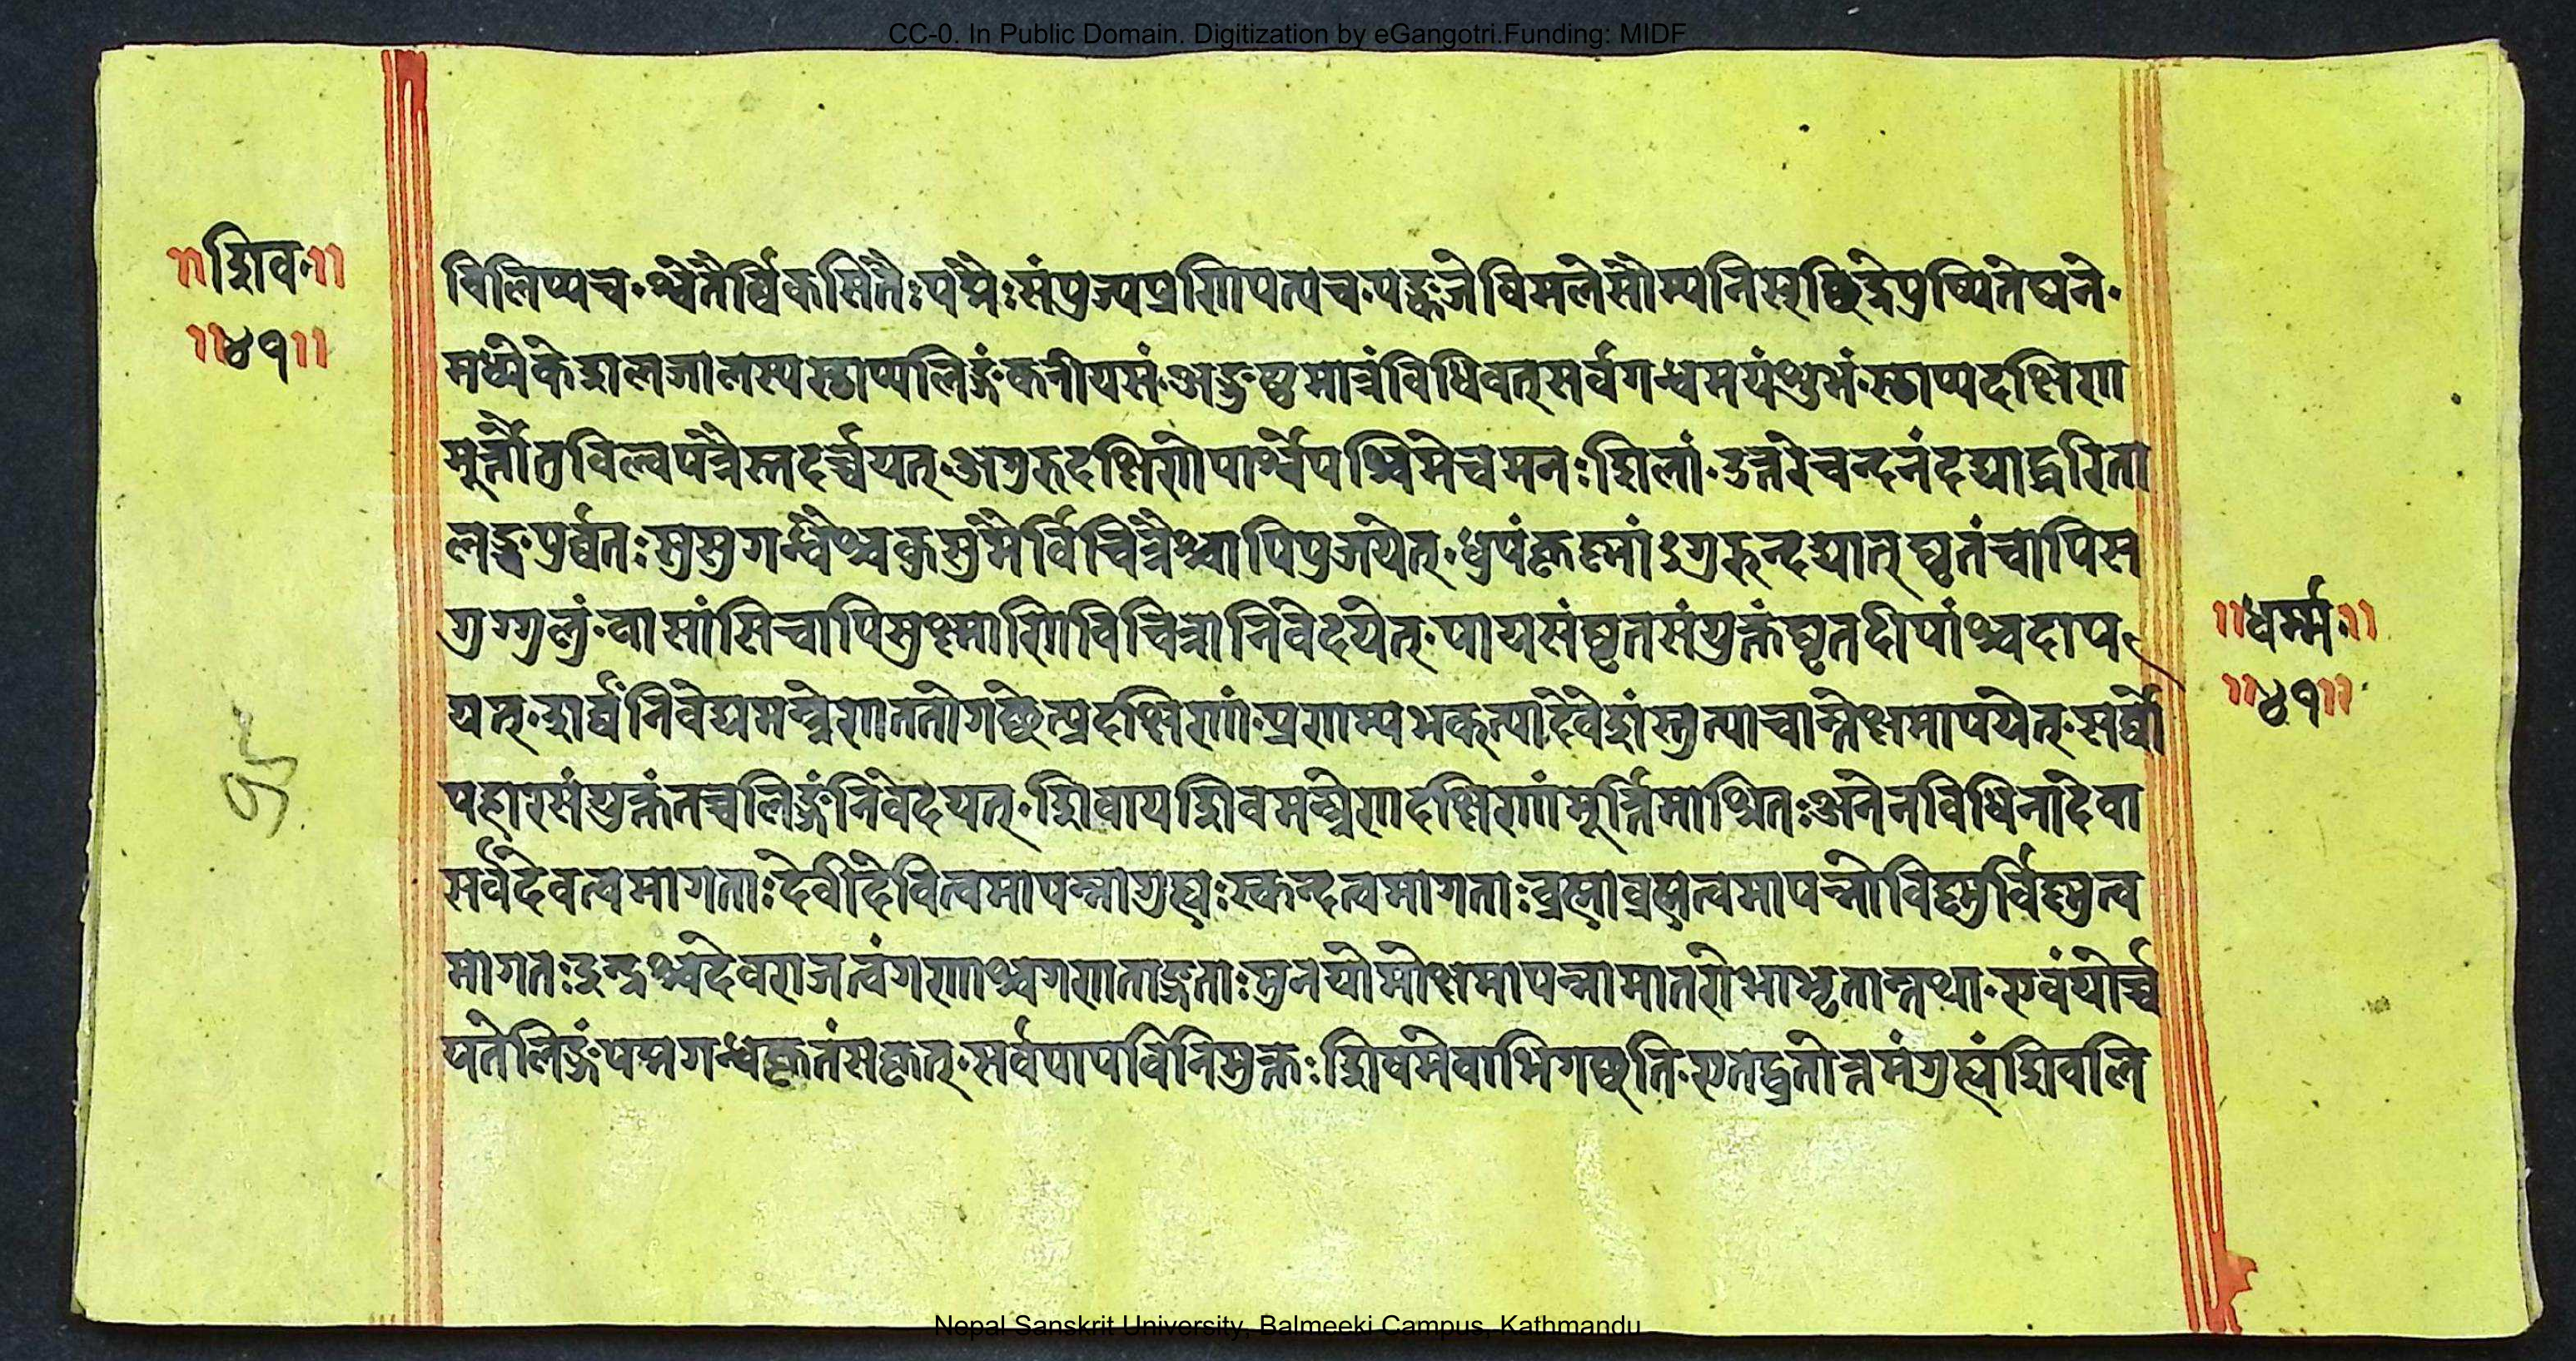 CC-0. In Public Domain. Digitization by eGangotri.Funding: MIDF
॥शिव॰॥
॥४१॥
विलिप्यच॰श्वेतैर्व्विकसितैःपद्मैःसंपूज्यप्रणिपत्यच॰पङ्कजेविमलेसौम्यनिसृच्छिद्रेपुष्पितेघने॰
मध्येकेशलजालस्यस्छाप्यलिङ्गंकनीयसं॰अङ्गुष्ठमात्रंविधिवत्सर्वगन्धमयंशुभं॰स्छाप्यदक्षिण
मूर्त्तौतुविल्वपत्रैस्तदर्च्चयत्॰अगुरुदक्षिणेपार्श्वेपश्चिमेचमनःशिलां॰उत्तरेचन्दनंदद्याद्धरिता
लङ्तुपूर्व्वतःसुसुगन्धैश्चकुसुमैर्विचित्रैश्चापिपूजयेत्॰धूपंकृष्णांऽगुरुन्दद्यात्घृतंचापिस
गुग्गुलुं॰वासांसिचापिसुक्ष्माणिविचित्रोनिवेदयेत्॰पायसंघृतसंयुक्तंघृतदीपांश्चदाप
यत्॰शर्व्वंनिवेद्यमन्त्रेणततोगच्छेत्प्रदक्षिणां॰प्रणम्यभक्त्यादेवेशंस्तुत्याचान्तेक्षमापयेत्॰सर्व्वो
पहारसंयुक्तंतच्चलिङ्गंनिवेदयत्॰शिवायशिवमन्त्रेणदक्षिणांमूर्त्तिमाश्रितःअनेनविधिनादेवा
सर्वेदेवत्वमागताःदेवीदेवित्वमापन्नागुह्यःस्कन्दत्वमागताःब्रह्माब्रह्मत्वमापन्नोविष्णुर्विष्णुत्व
मागतःइन्द्रश्चदेवराजत्वंगणाश्चगणताङ्गताःमुनयोमोक्षमापन्नामातरोभाभृतान्तथा॰एवंयोर्च्च
यतेलिङ्गंपद्मगन्धकृतंसकृत्॰सर्वपापविनिमुक्तःशिवमेवाभिगच्छति॰एतद्व्रतोत्तमंगुह्यंशिवलि
॥धर्म्म॰॥
॥४१॥
Nepal Sanskrit University, Balmeeki Campus, Kathmandu